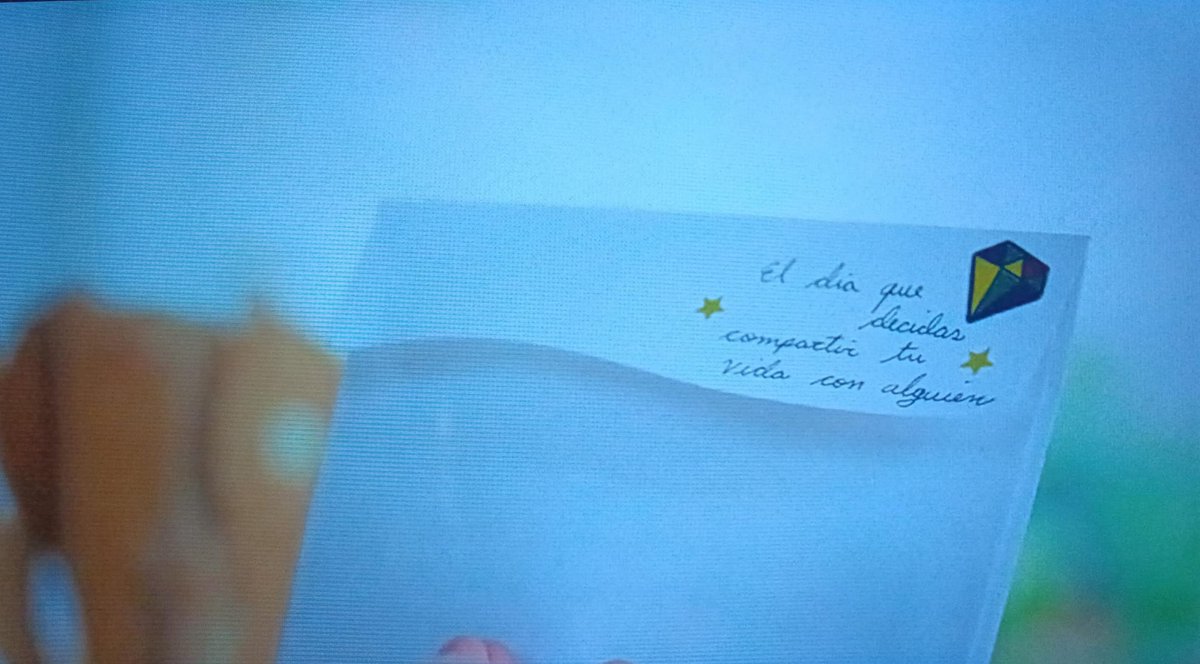 El día que
decidas
compartir tu
vida con alguien